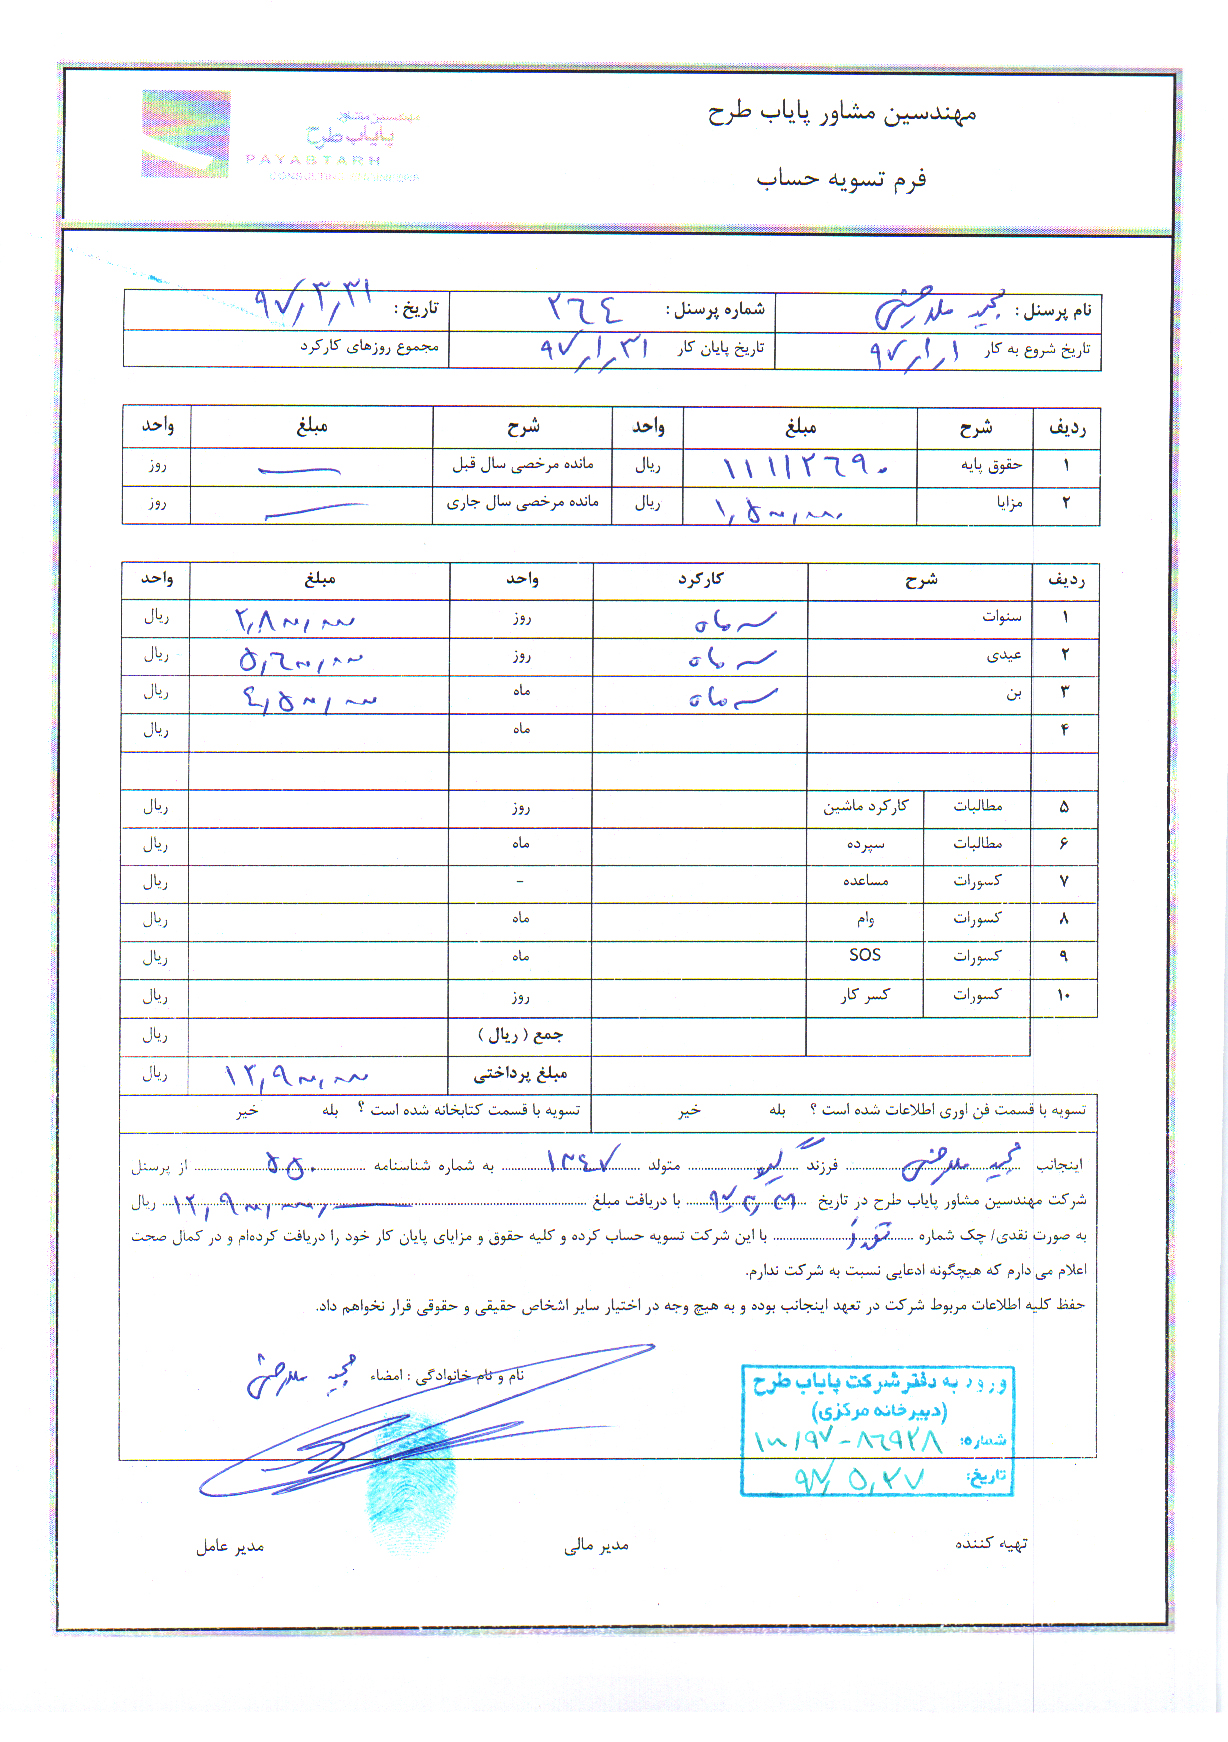 مهندسین مشاور پایاب طرح
مهندسین مشاور
پایاب طرح
PAYABTARH
CONSULTING ENGINEERS
فرم تسویه حساب
نام پرسنل : مجید شماره پرسنل : ۲۶۴ تاریخ : ۹۷/۳/۳۱
تاریخ شروع به کار ۹۷/۱/۱ تاریخ پایان کار ۹۷/۱/۳۱ مجموع روزهای کارکرد
ردیف شرح مبلغ واحد شرح مبلغ واحد
۱ حقوق پایه ۱۱۱۱۲۶۹۰ ریال مانده مرخصی سال قبل — روز
۲ مزایا ۱,۵۰۰,۰۰۰ ریال مانده مرخصی سال جاری — روز
ردیف شرح کارکرد واحد مبلغ واحد
۱ سنوات سه ماه روز ۲,۸۰۰,۰۰۰ ریال
۲ عیدی سه ماه روز ۵,۶۰۰,۰۰۰ ریال
۳ بن سه ماه ماه ۴,۵۰۰,۰۰۰ ریال
۴ ماه ریال
۵ مطالبات کارکرد ماشین روز ریال
۶ مطالبات سپرده ماه ریال
۷ کسورات مساعده - ریال
۸ کسورات وام ماه ریال
۹ کسورات SOS ماه ریال
۱۰ کسورات کسر کار روز ریال
جمع ( ریال ) ریال
مبلغ پرداختی ۱۲,۹۰۰,۰۰۰ ریال
تسویه با قسمت فن اوری اطلاعات شده است ؟ بله خیر تسویه با قسمت کتابخانه شده است ؟ بله خیر
اینجانب مجید فرزند متولد ۱۳۴۷ به شماره شناسنامه ۵۵۰ از پرسنل
شرکت مهندسین مشاور پایاب طرح در تاریخ ۹۷/۳/۳۱ با دریافت مبلغ ۱۲,۹۰۰,۰۰۰ ریال
به صورت نقدی/ چک شماره با این شرکت تسویه حساب کرده و کلیه حقوق و مزایای پایان کار خود را دریافت کرده‌ام و در کمال صحت
اعلام می دارم که هیچگونه ادعایی نسبت به شرکت ندارم.
حفظ کلیه اطلاعات مربوط شرکت در تعهد اینجانب بوده و به هیچ وجه در اختیار سایر اشخاص حقیقی و حقوقی قرار نخواهم داد.
نام و نام خانوادگی : امضاء مجید
ورود به دفتر شرکت پایاب طرح
(دبیرخانه مرکزی)
شماره: ۱۰۰/۹۷-۸۶۹۲۸
تاریخ: ۹۷/۵/۲۷
تهیه کننده مدیر مالی مدیر عامل